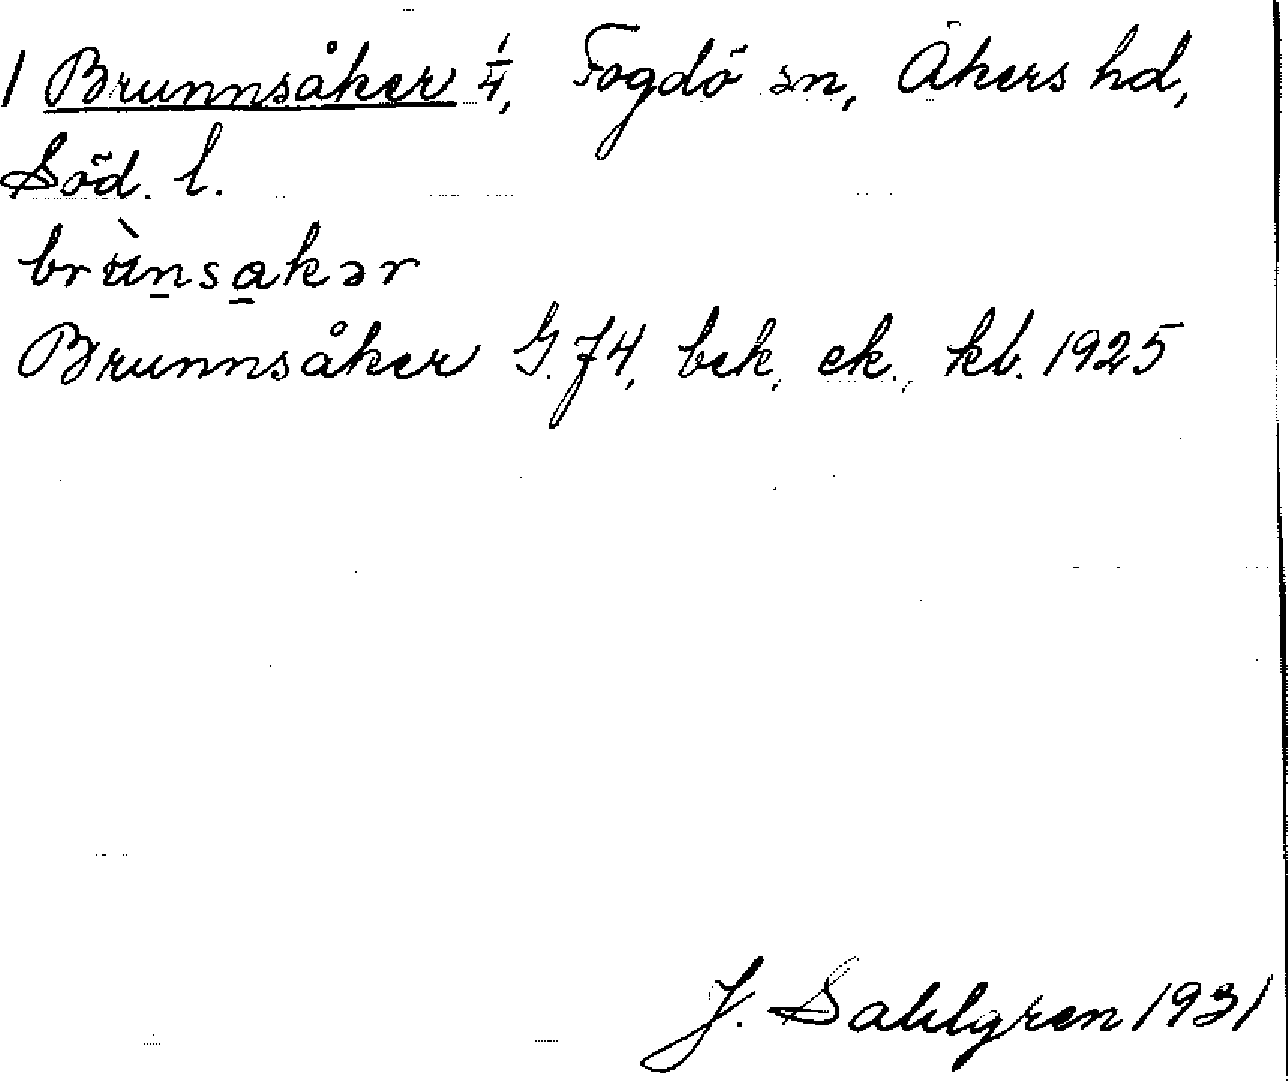 1 Brunnsåker 1/4, Fogdö sn, Åkers hd,
Söd. l.
brùnsakər
Brunnsåker G.J4, bek, ek., kb. 1925
J. Sahlgren 1931